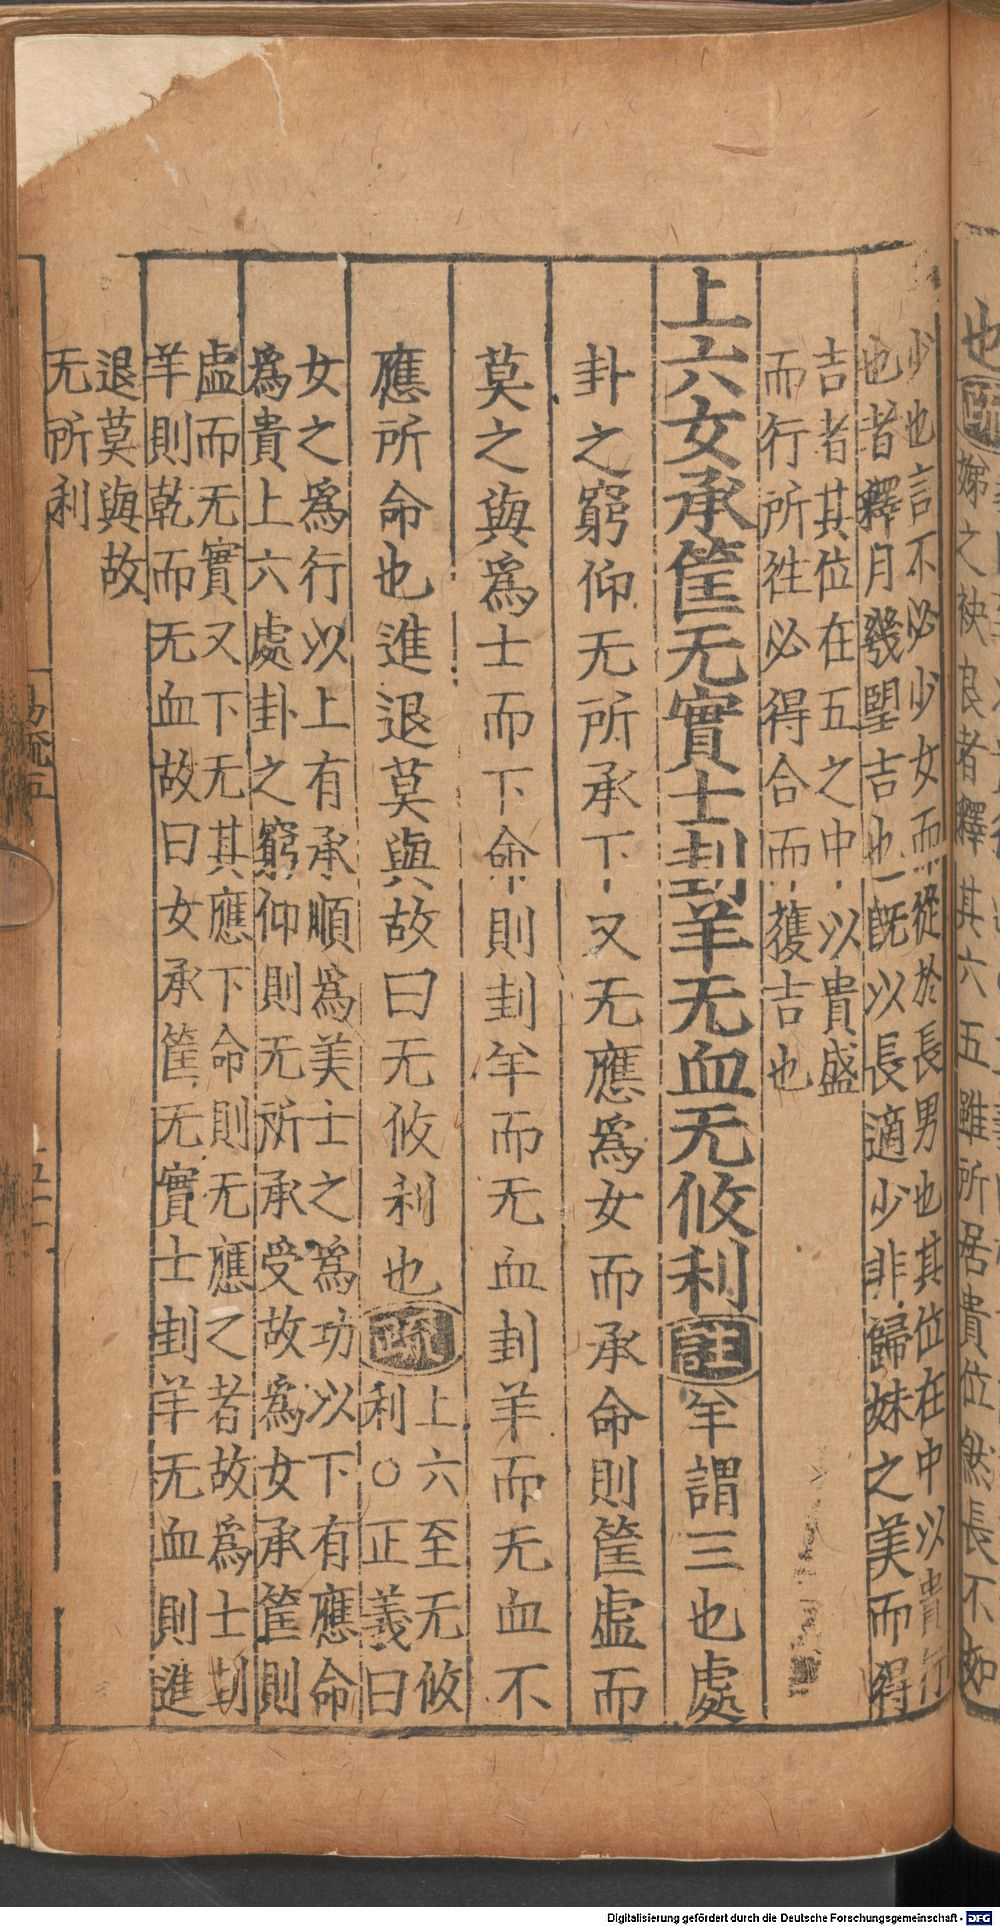 也疏
娣之袂良者釋其六五雖所居貴位然長不如
少也言不必少女而從於長男也其位在中以貴行
也者釋月幾望吉也既以長適少非歸妹之美而得
吉者其位在五之中以貴盛
而行所徃必得合而獲吉也
上六女承筐无實士刲羊无血无攸利註羊謂三也處
卦之窮仰无所承下又无應爲女而承命則筐虛而
莫之與爲士而下命則刲羊而无血刲羊而无血不
應所命也進退莫與故曰无攸利也疏
上六至无攸
利○正義曰
女之爲行以上有承順爲美士之爲功以下有應命
爲貴上六處卦之窮仰則无所承受故爲女承筐則
虛而无實又下无其應下命則无應之者故爲士刲
羊則乾而无血故曰女承筐无實士刲羊无血則進
退莫與故
无所利
易疏五
Digitalisierung gefördert durch die Deutsche Forschungsgemeinschaft - DFG